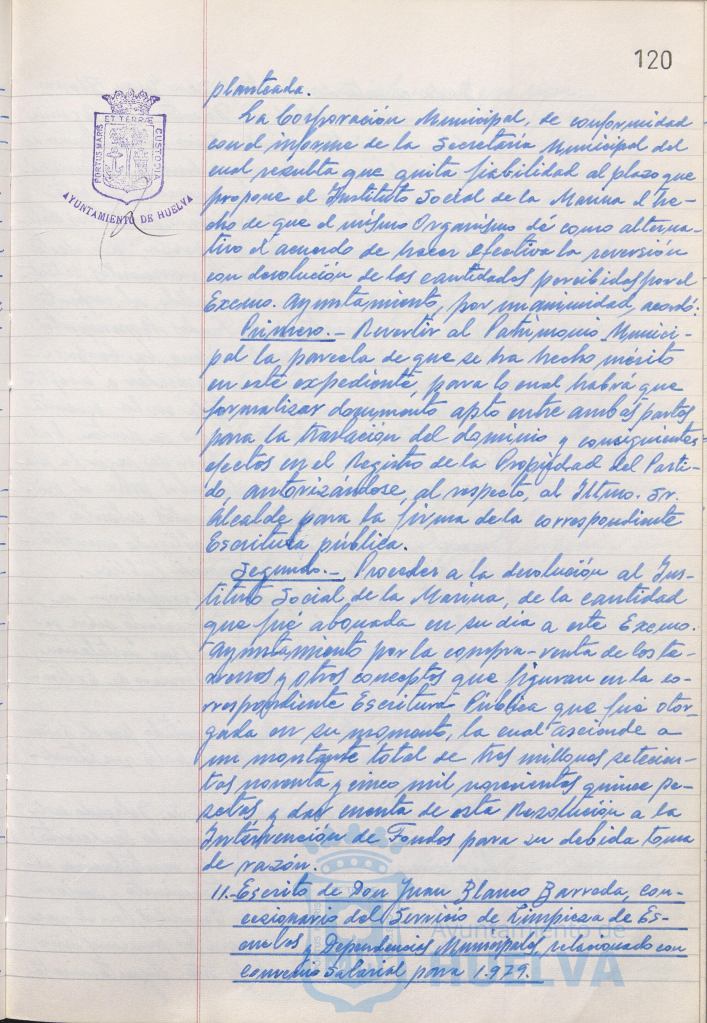 120
PORTUS MARIS
ET TERRÆ
CUSTODIA
AYUNTAMIENTO DE HUELVA
planteada.
La Corporación Municipal, de conformidad
con el informe de la Secretaría Municipal del
cual resulta que quita fiabilidad al plazo que
propone el Instituto Social de la Marina el he-
cho de que el mismo Organismo dé como alterna-
tivo el acuerdo de hacer efectiva la reversión
con devolución de las cantidades percibidas por el
Excmo. Ayuntamiento, por unanimidad, acordó:
Primero.- Revertir al Patrimonio Munici-
pal la parcela de que se ha hecho mérito
en este expediente, para lo cual habrá que
formalizar documento apto entre ambas partes
para la traslación del dominio y consiguientes
efectos en el Registro de la Propiedad del Parti-
do, autorizándose, al respecto, al Iltmo. Sr.
Alcalde para la firma de la correspondiente
Escritura pública.
Segundo.- Proceder a la devolución al Ins-
tituto Social de la Marina, de la cantidad
que fué abonada en su día a este Excmo.
Ayuntamiento por la compra-venta de los te-
rrenos y otros conceptos que figuran en la co-
rrespondiente Escritura Pública que fué otor-
gada en su momento, la cual asciende a
un montante total de tres millones setecien-
tas noventa y cinco mil novecientas quince pe-
setas y dar cuenta de esta Resolución a la
Intervención de Fondos para su debida toma
de razón.
11.- Escrito de Don Juan Blanco Barreda, con-
cesionario del Servicio de Limpieza de Es-
cuelas y Dependencias Municipales, relacionado con
Convenio Salarial para 1.979.
Ayuntamiento de
HUELVA